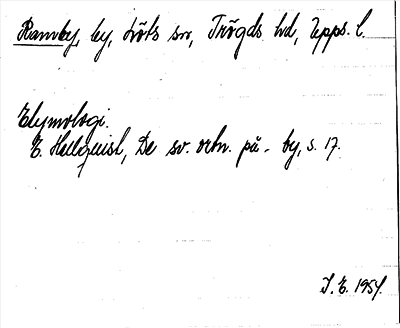 Ramby, by, Löts sn, Trögds hd, Upps. l.
Etymologi.
E. Hellquist, De sv. ortn. på -by, s. 17.
I. E. 1954.